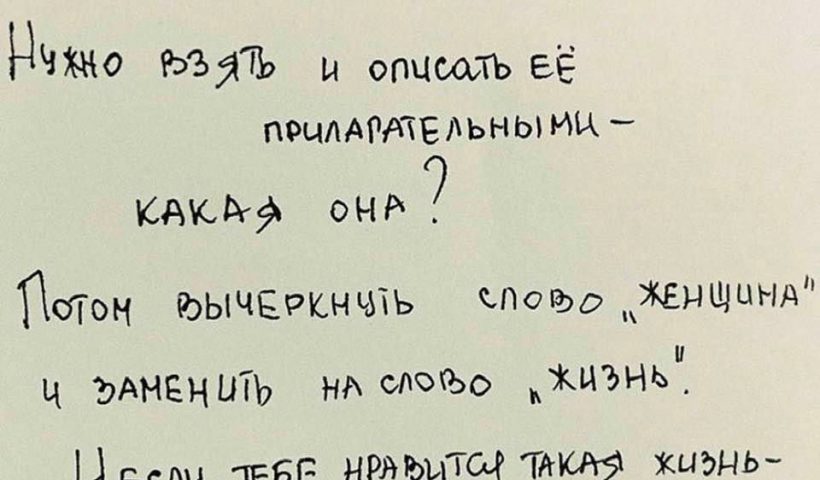 Нужно взять и описать её
прилагательными –
какая она?
Потом вычеркнуть слово „женщина"
и заменить на слово „жизнь".
И если тебе нравится такая жизнь –